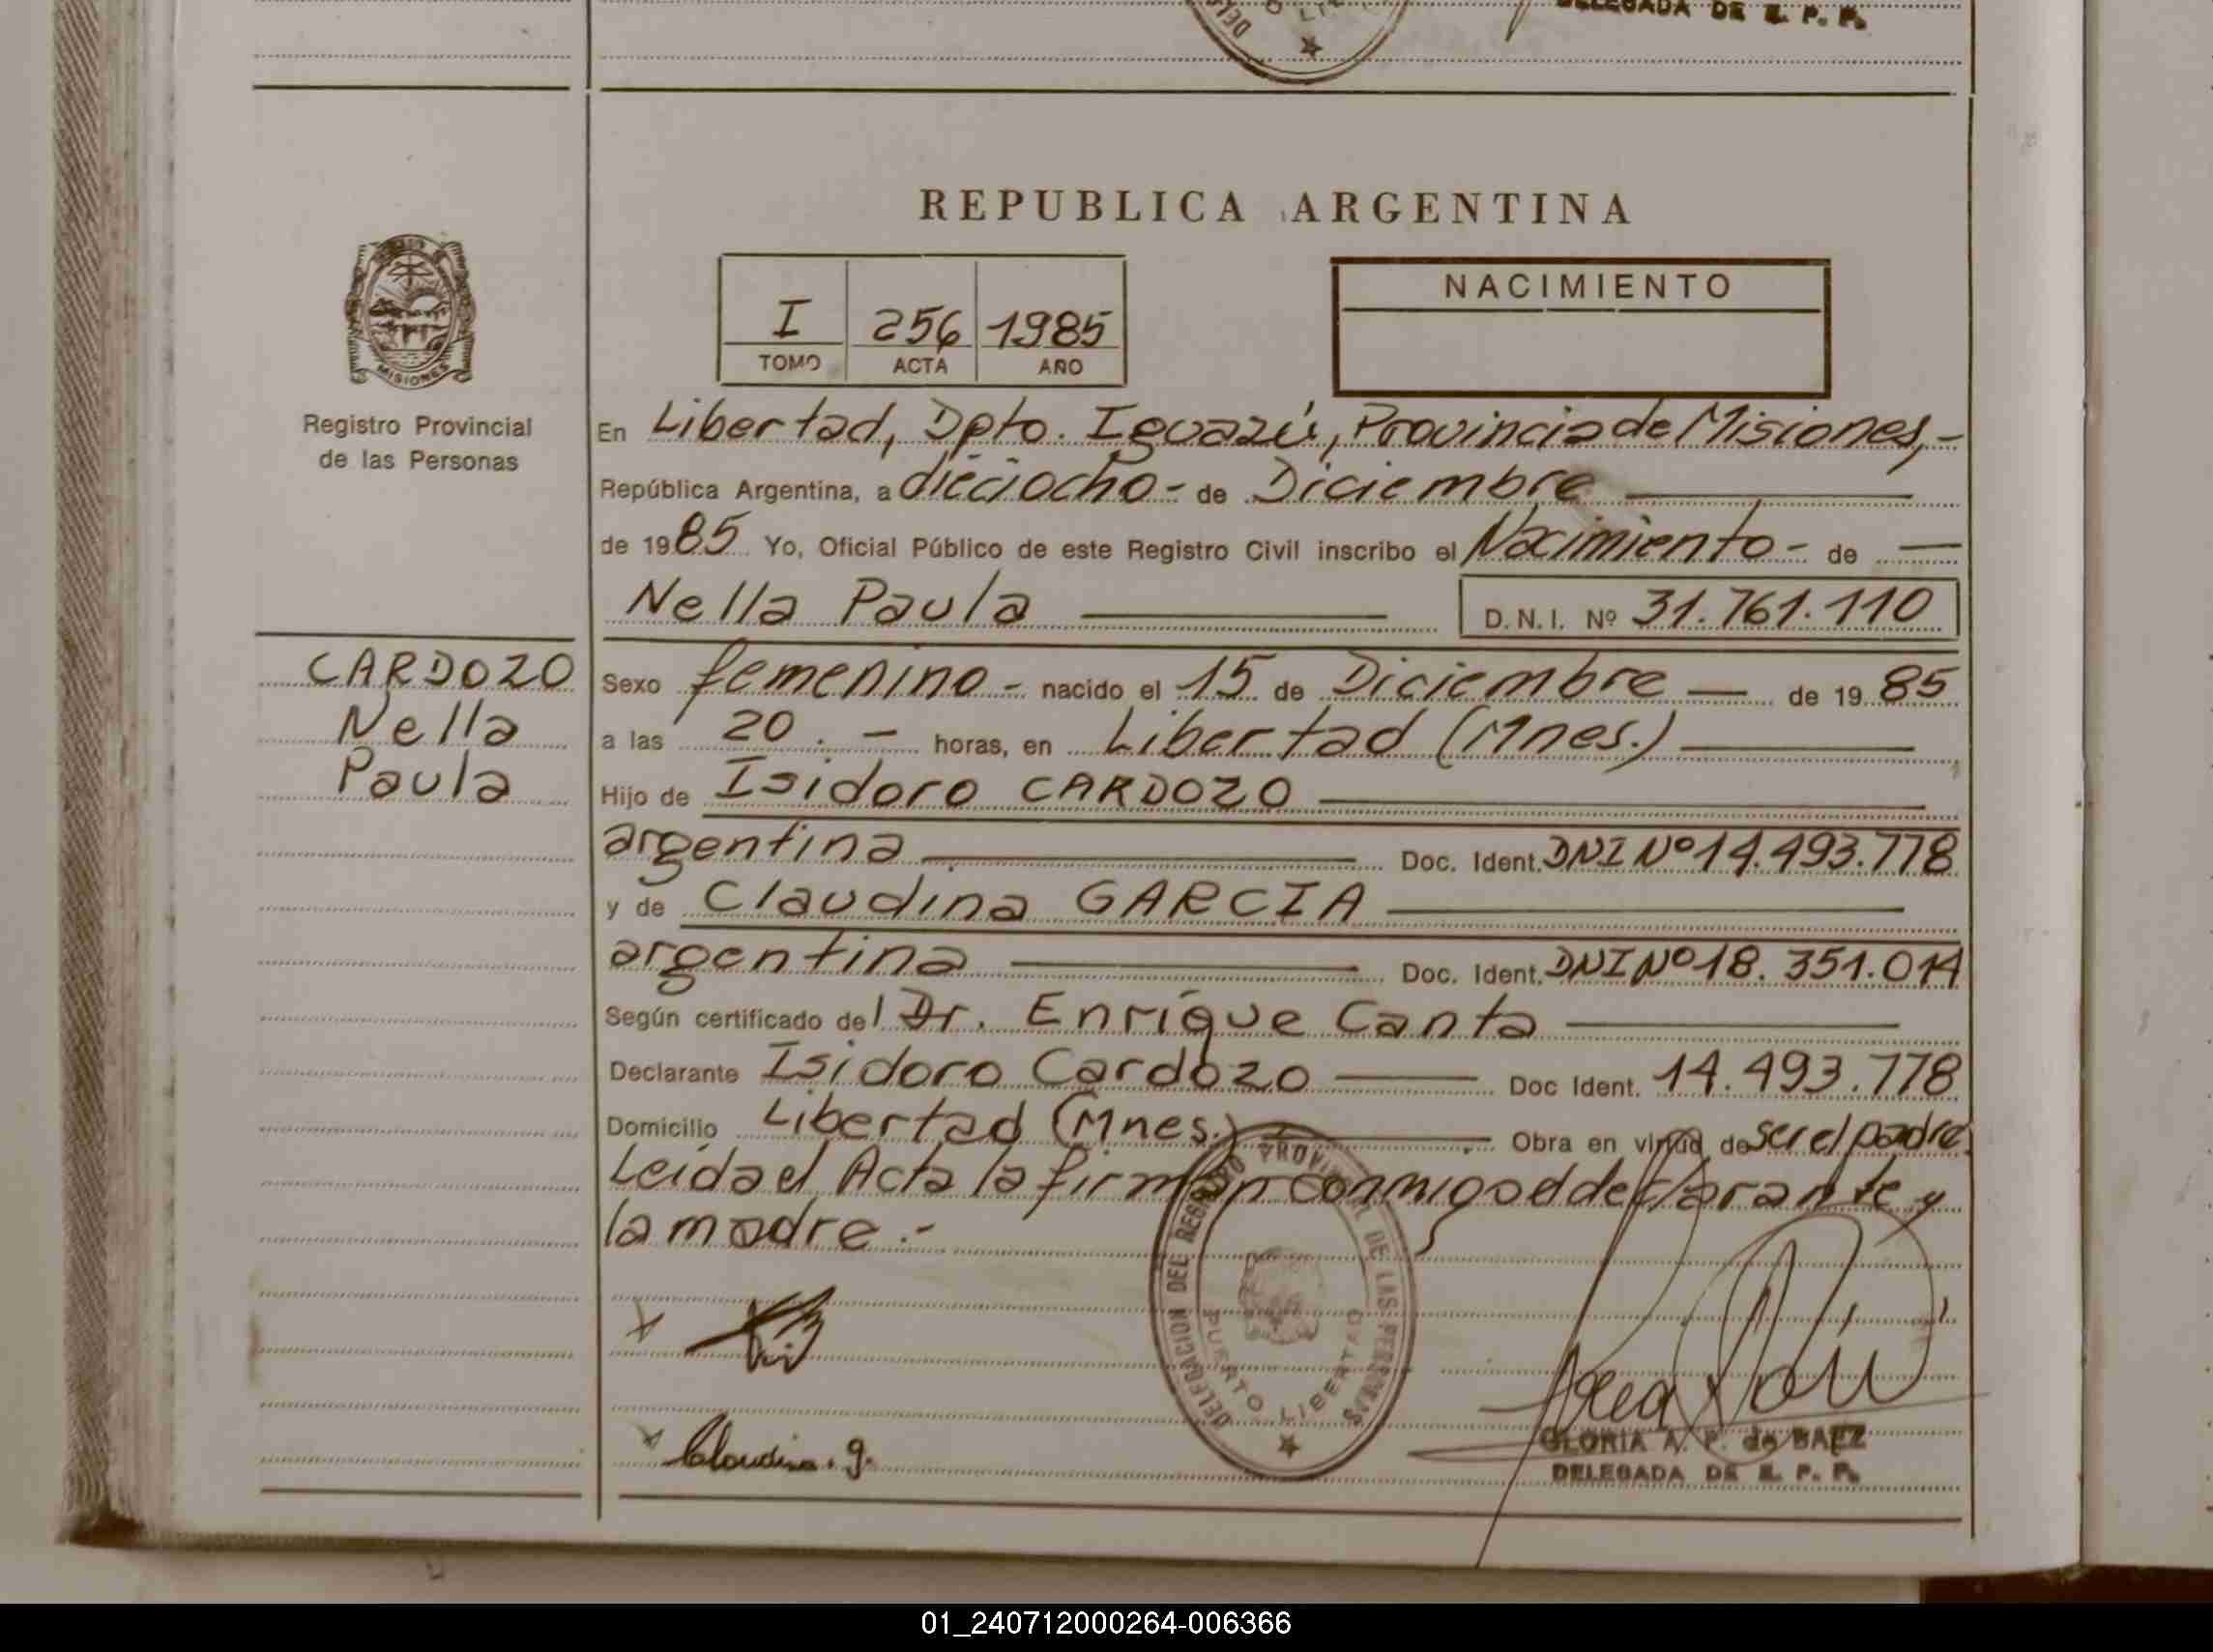 DELEGADA DE R. P. P.
REPUBLICA ARGENTINA
NACIMIENTO
I 256 1985
TOMO ACTA AÑO
MISIONES
Registro Provincial
de las Personas
En Libertad, Dpto. Iguazú, Provincia de Misiones,-
República Argentina, a dieciocho- de Diciembre
de 1985 Yo, Oficial Público de este Registro Civil inscribo el Nacimiento- de
Nella Paula D.N.I. Nº 31.761.110
CARDOZO
Nella
Paula
Sexo femenino- nacido el 15 de Diciembre de 1985
a las 20.- horas, en Libertad (Mnes.)
Hijo de Isidoro CARDOZO
argentina Doc. Ident. DNI Nº 14.493.778
y de Claudina GARCIA
argentina Doc. Ident. DNI Nº 18.351.014
Según certificado del Dr. Enrique Canta
Declarante Isidoro Cardozo Doc Ident. 14.493.778
Domicilio Libertad (Mnes.) Obra en virtud de ser el padre
Leida el Acta la firman conmigo el declarante y
la madre.-
DELEGACION DEL REGISTRO PROVINCIAL DE LAS PERSONAS
PUERTO LIBERTAD
Claudina. g.
GLORIA A. P. de BAEZ
DELEGADA DE R. P. P.
01_240712000264-006366